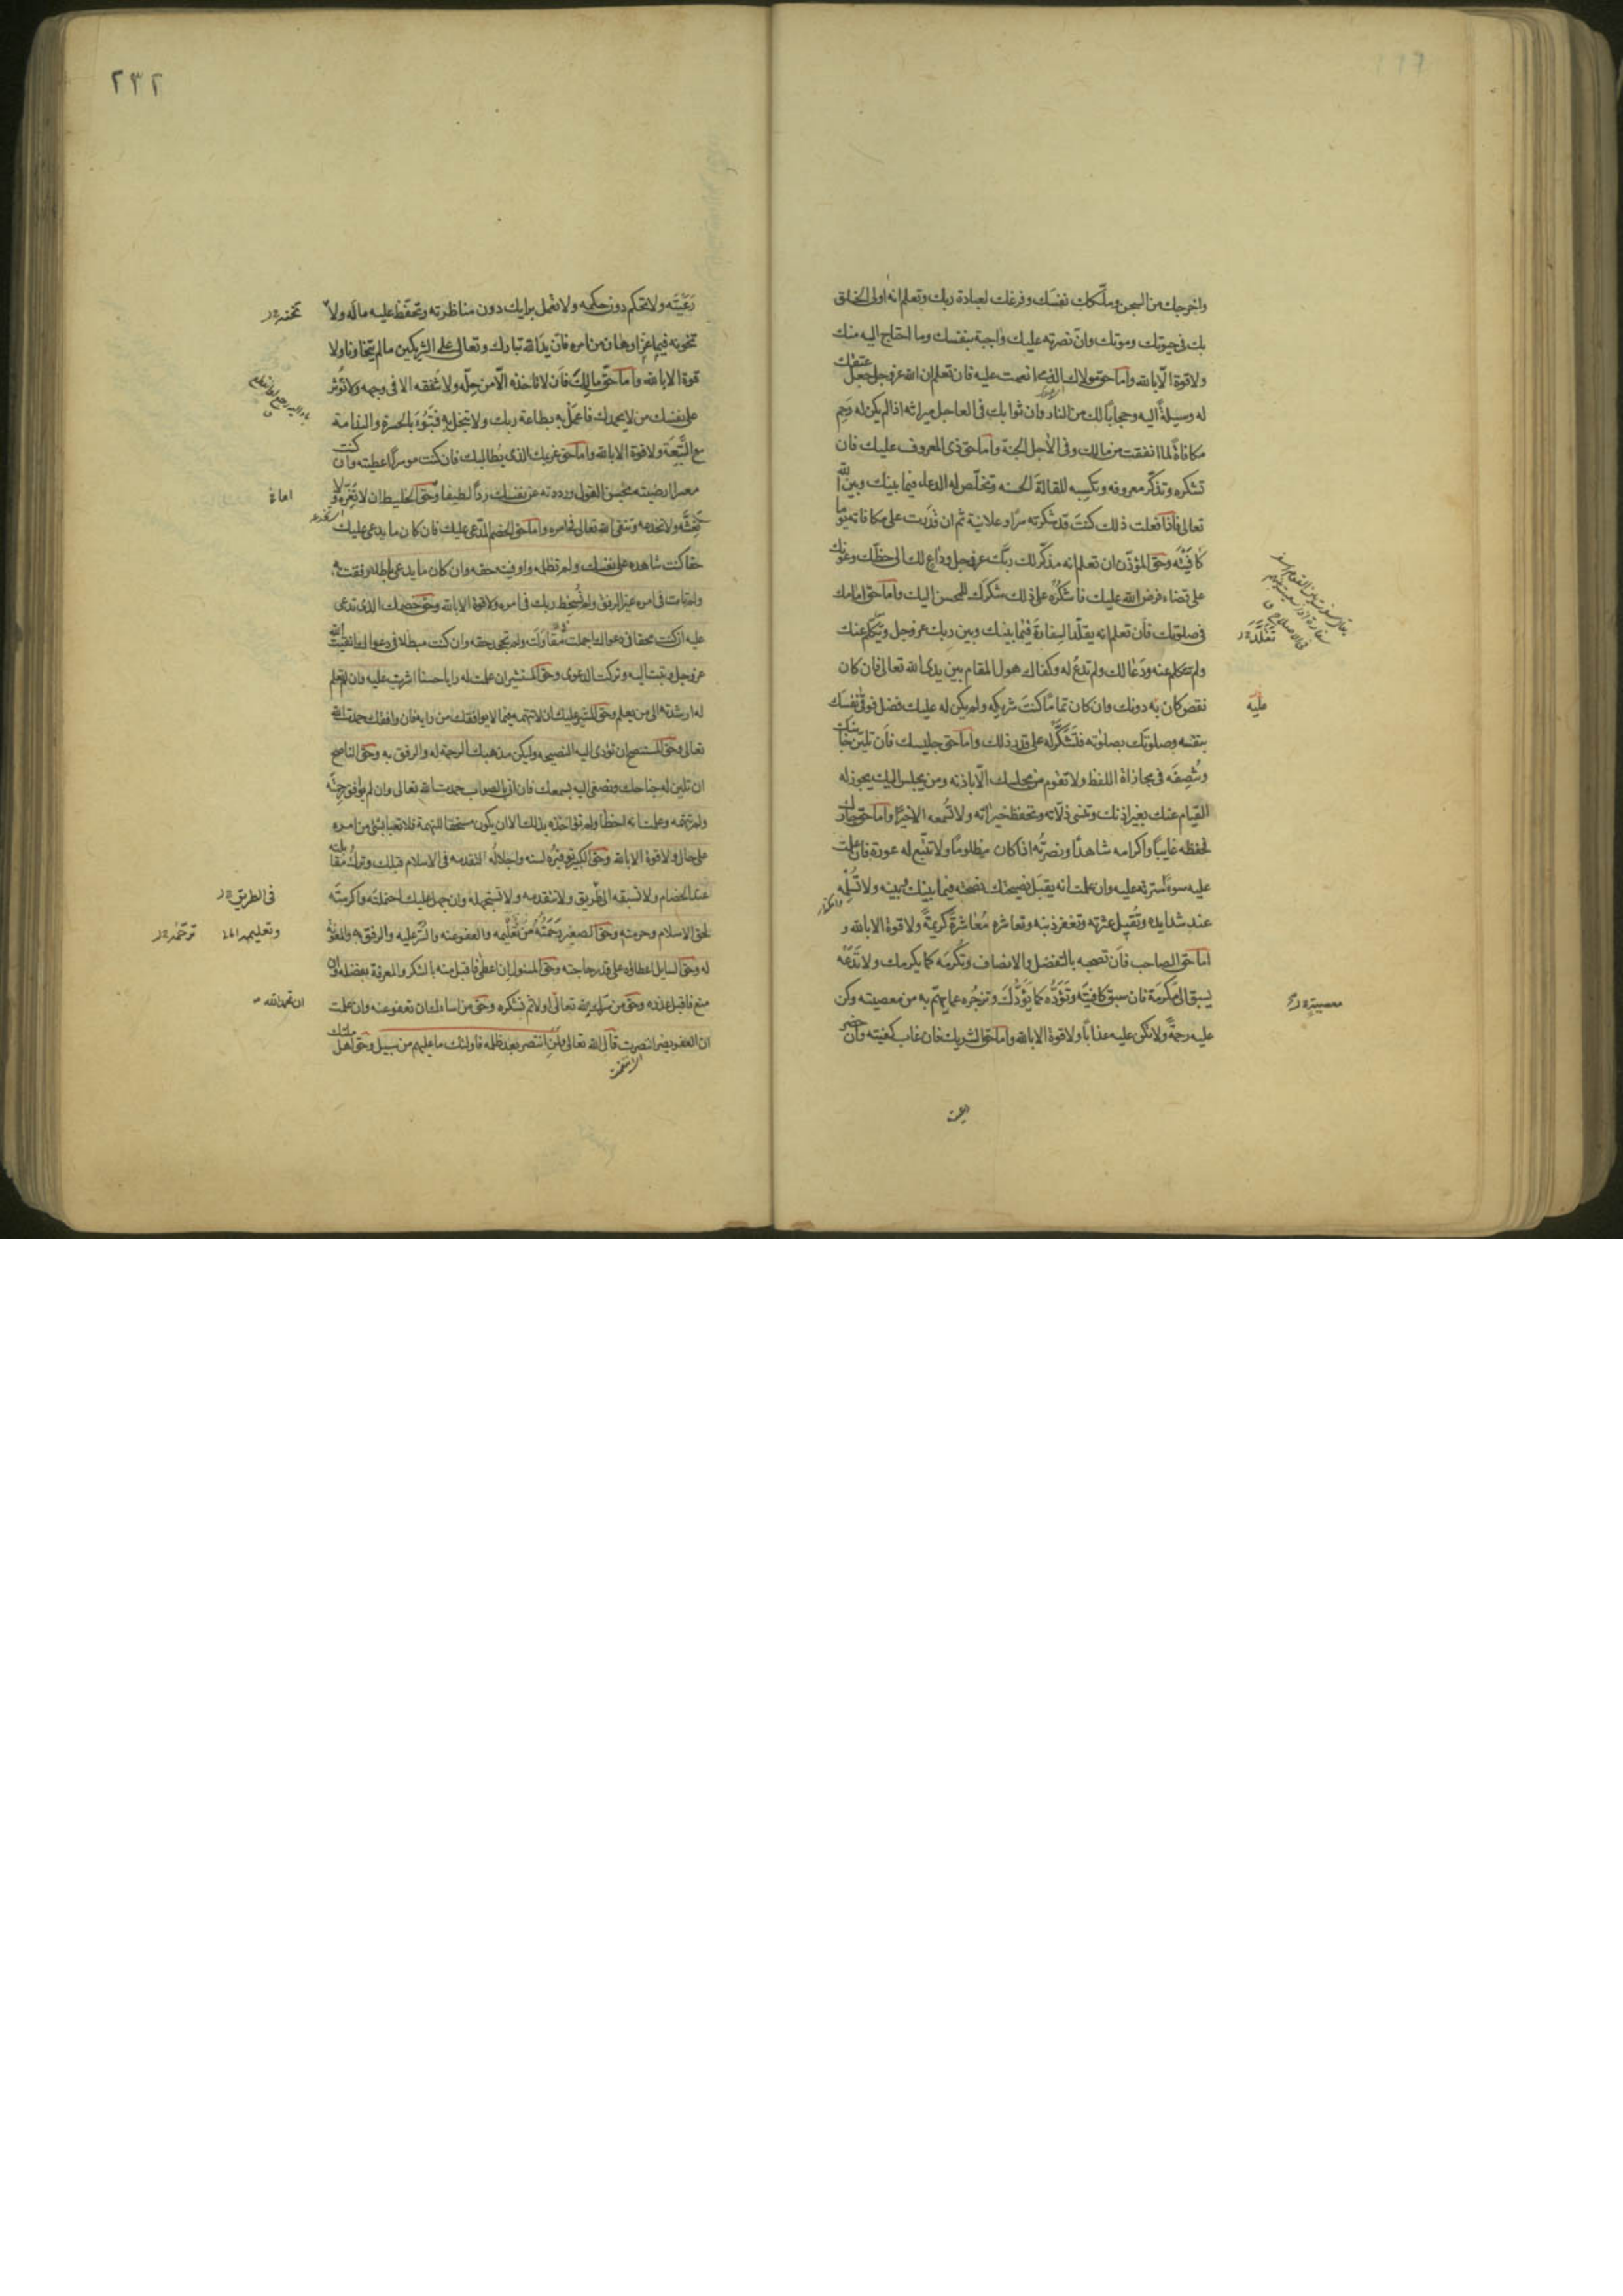 واخرجك من السجن وملّكك نفسَك وفرغك لعبادة ربك وتعلم انه اولى الخلق
بك فى حيوتك وموتك وانّ نصرته عليك واجبة بنفسك وما احتاج اليه منك
ولا قوة الّا بالله وامّا حق مولاك الذى انعمت عليه فان تعلم ان الله عز وجل جعل عتقك
له وسيلةً اليه وحجابًا لك من النار وان ثوابك فى العاجل ميراثه اذا لم يكن له رَحِم
مكافاةً لما انفقت من مالك وفى الآجل الجنة وامّا حق ذى المعروف عليك فان
تشكره وتذكّر معروفه وتكسبه المقالةَ الحسنه وتخلّص له الدعاء فيما بينك وبين الله
تعالى فاذا فعلت ذلك كنتَ قد شكرته سرًّا وعلانية ثم ان قدَرت على مكافاته يوما
كافَيْتَه وحقّ المؤذّن ان تعلم انه مذكّر لك ربّك عز وجل وداعٍ لك الى حظّك وعونك
على قضاء فرض الله عليك فاشكُرْه على ذلك شكرَك للمحسن اليك وامّا حق امامك
فى صلوتك فان تعلم انه يقلّد السفارةَ فيما بينك وبين ربك عز وجل وتكلّم عنك
ولم تتكلم عنه ودَعا لك ولم تدعُ له وكفاك هول المقام بين يدى الله تعالى فان كان
نقص كان به دونك وان كان تمامًا كنتَ شريكه ولم يكن له عليك فضل فوقى نفسَك
بنفسه وصلوتك بصلوته فتشكّر له على قدر ذلك وامّا حق جليسك فان تلين جانبك
وتُنصِفَه فى مجازاة اللفظ ولا تقوم من مجلسك الّا باذنه ومن يجلس اليك يجوز له
القيام عنك بغير اذنك وتنسى زلّاته وتحفظ خيراته ولا تُسمعه الا خيرًا وامّا حق جارك
فحفظه غايبًا واكرامه شاهدًا ونصرتُه اذا كان مظلومًا ولا تتبّع له عورة فان علمت
عليه سوءً سترته عليه وان علمت انه يقبَل نصيحتك نصحته فيما بينك وبينه ولا تُسلِمه
عند شدايده وتُقيل عثرته وتغفر ذنبه وتعاشره مُعاشرةً كريمةً ولا قوة الا بالله و
امّا حق الصاحب فان تصحبه بالتفضل والانصاف وتُكرمَه كما يكرمك ولا تَدَعْه
يسبق الى مَكرمة فان سبق كافيتَه وتَوَدُّه كما يَوَدُّك وتزجُره عما يهمّ به من معصيته وكن
عليه رحمةً ولا تكن عليه عذابًا ولا قوة الا بالله وامّا حق الشريك فان غاب كفيته وان حضر
عليه
معصيته
٢٣٢
رَعَيْتَه ولا تحكم دون حكمه ولا تعمل برايك دون مناظرته وتحفَظ عليه مالَه ولا
تخونه فيما عزّ او هان من امره فانّ يد الله تبارك وتعالى على الشريكين ما لم يتخاونا ولا
قوة الا بالله وامّا حقّ مالِك فان لا تاخذه الّا من حِلّه ولا تنفقه الا فى وجهه ولا تُوثر
على نفسك من لا يحمدك فاعمَلْ به بطاعة ربك ولا تبخل به فتَبُوءَ بالحسرة والندامة
مع التَّبِعَة ولا قوة الا بالله وامّا حق غريمك الذى يُطالبك فان كنت موسرًا اعطيته وان كنت
معسرا ارضيته بحُسن القول ورددته عن نفسك ردًّا لطيفا وحقّ الخليط ان لا تغرّه ولا
تَغُشَّه ولا تخدعه وتتقى الله تعالى فى امره وامّا حق الخصم المدّعى عليك فان كان ما يدعى عليك
حقا كنت شاهده على نفسك ولم تظلمه واوفيته حقه وان كان ما يدعى باطلا رفقت به
ولم تات فى امره غير الرفق ولم تُسخط ربك فى امره ولا قوة الا بالله وحق خصمك الذى تدعى
عليه ان كنت محقا فى دعواك اجملت مُقاوَلَته ولم تجحد حقه وان كنت مبطلا فى دعواك اتقيت الله
عز وجل وتبت اليه وتركت الدعوى وحق المستشير ان علمت له رايا حسنا اشرت عليه وان لم تعلم
له ارشدته الى من يعلم وحق المشير عليك ان لا تتهمه فيما لا يوافقك من رايه فان وافقك حمدت الله
تعالى وحق المستنصح ان تؤدى اليه النصيحه وليكن مذهبك الرحمة له والرفق به وحق الناصح
ان تلين له جناحك وتصغى اليه بسمعك فان اتى بالصواب حمدت الله تعالى وان لم يوافق رحمته
ولم تتهمه وعلمت انه اخطأ ولم تؤاخذه بذلك الا ان يكون مستحقا للتهمة فلا تعبأ بشئ من امره
على حال ولا قوة الا بالله وحق الكبير توقيره لسنه واجلاله لتقدمه فى الاسلام قبلك وترك مقابلته
عند الخصام ولا تسبقه الى طريق ولا تتقدمه ولا تستجهله وان جهل عليك احتملته واكرمته
لحق الاسلام وحرمته وحق الصغير رَحمَتُه مَن تعليمه والعفو عنه والستر عليه والرفق به والمعونة
له وحق السايل اعطاؤه على قدر حاجته وحق المسئول ان اعطى فاقبل منه بالشكر والمعرفة بفضله وان
منع فاقبل عذره وحق من سرّك لله تعالى اولا ثم تشكره وحق من اساءك ان تعفو عنه وان علمت
ان العفو يضر انتصرت قال الله تعالى ولمن انتصر بعد ظلمه فاولئك ما عليهم من سبيل وحق اهل ملتك
فى الطريق
ان تحمد الله